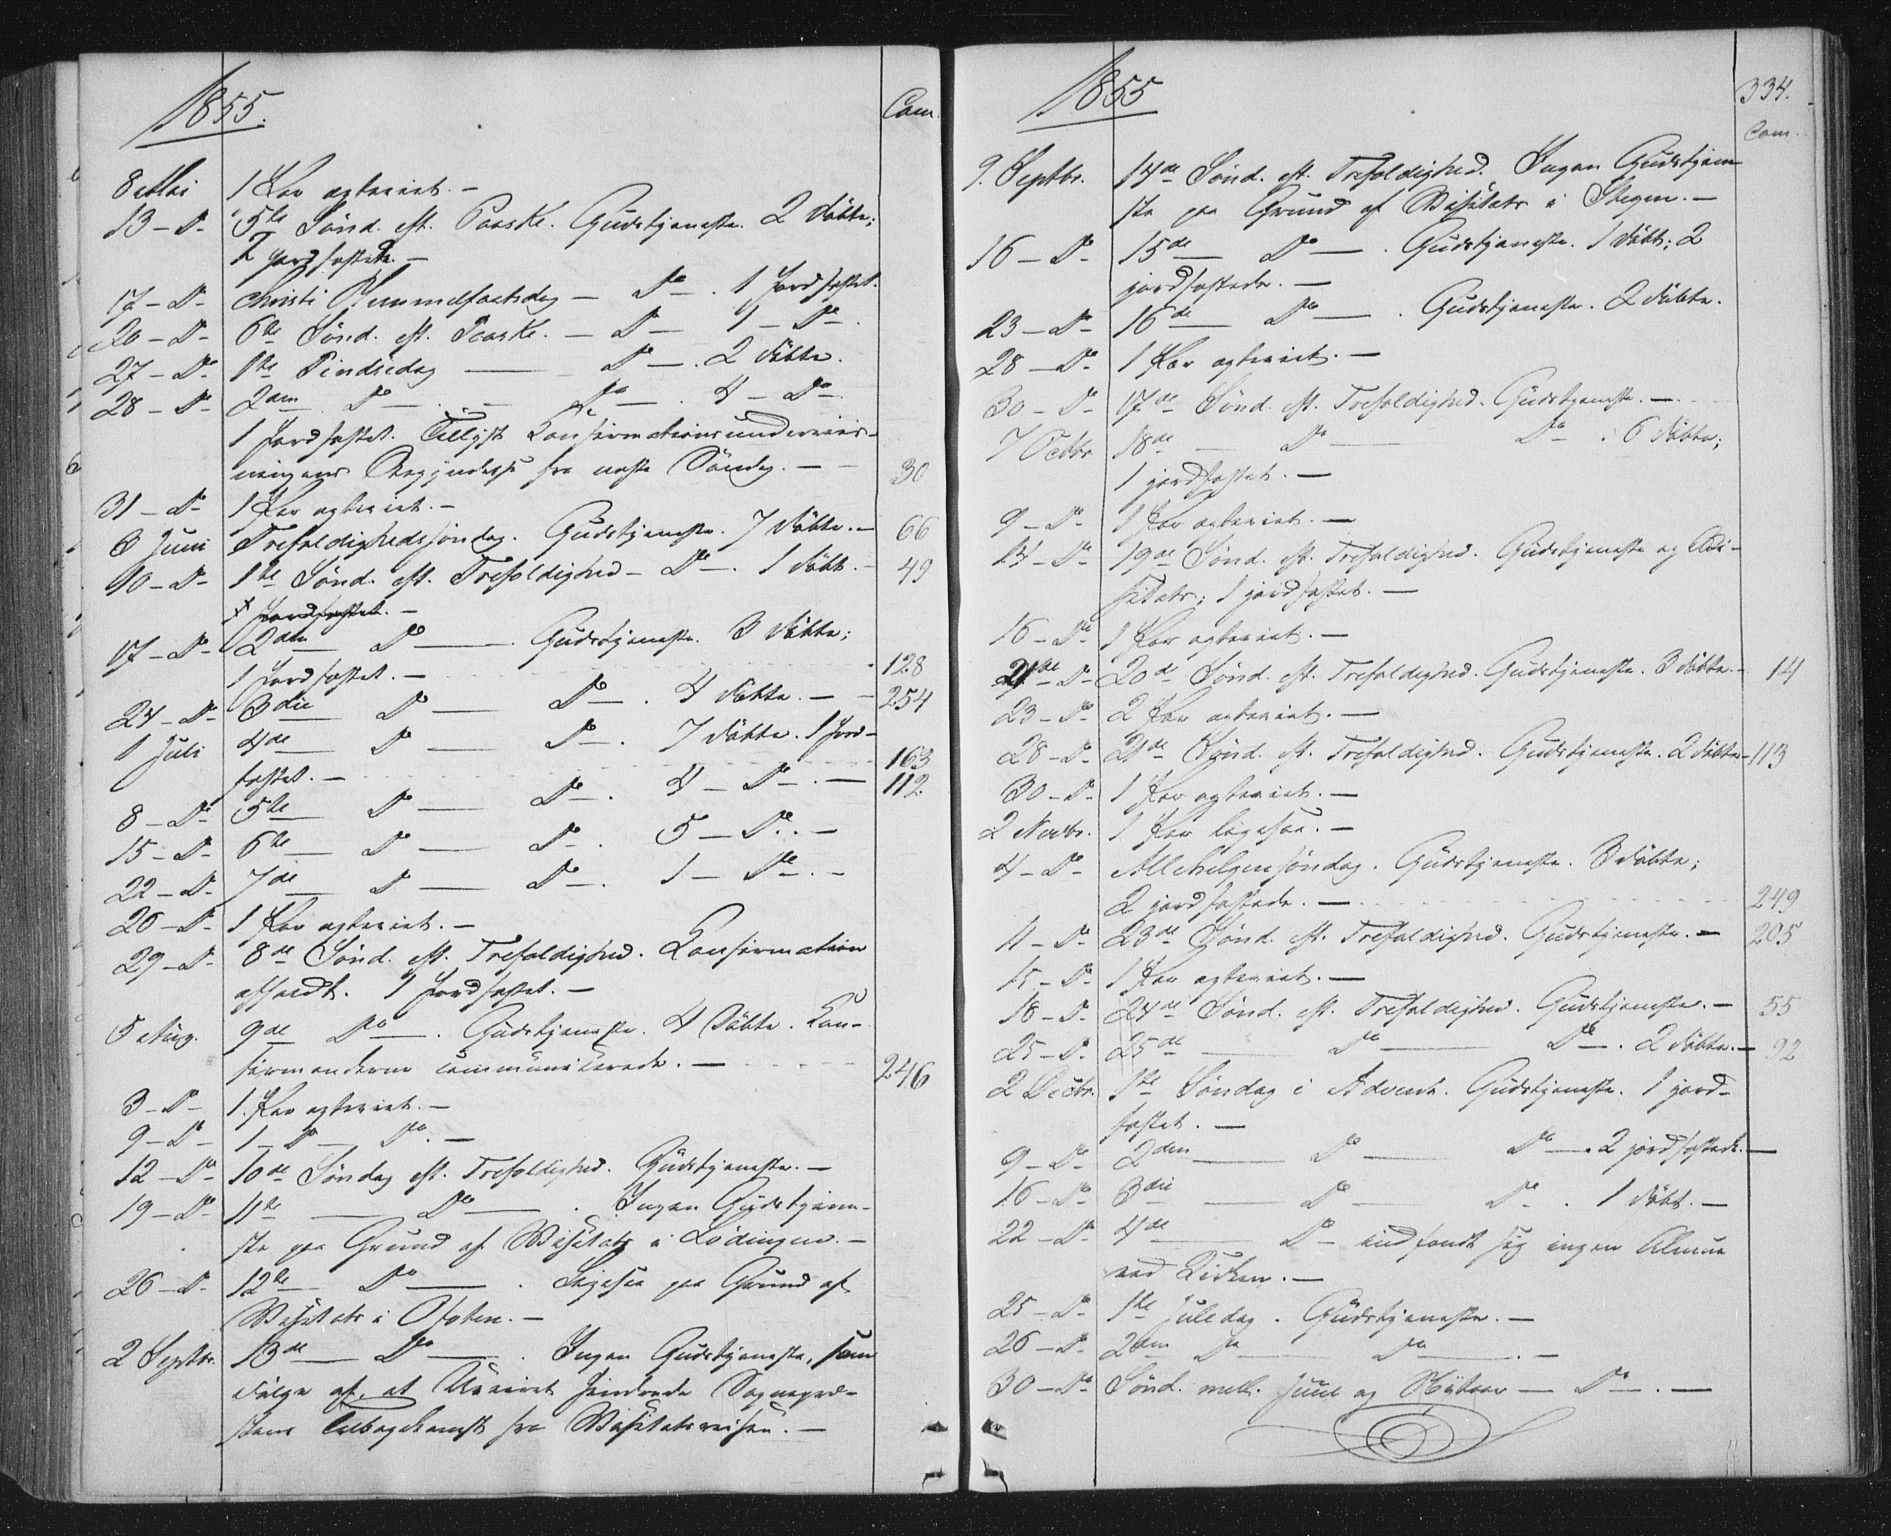 1855.
Com.
8 Mai 1 Par ægteviet. —
13 – Do 5te Sønd. eft. Paaske. Gudstjeneste. 2 døbte;
2 Jordfæstede. —
17 – Do Christi Himmelfartsdag — Do —. 1 Jordfæstet.
20 – Do 6te Sønd. eft. Paaske. — Do — 1 — Do.
27 – Do 1ste Pindsedag —— Do —. 2 døbte.
28 – Do 2den Do — . — Do —. 4 — Do.
1 Jordfæstet. Tillyst Konfirmationsunderviis-
ningens Begyndelse fra næste Søndag. — — 30
31 – Do 1 Par ægteviet. —
3 Juni Trefoldighedssøndag. Gudstjeneste. 7 døbte. — 66
10 – Do 1ste Sønd. eft. Trefoldighed — Do —. 1 døbt. — 49
1 Jordfæstet. —
17 – Do 2den Do ——. Gudstjeneste. 3 døbte;
1 Jordfæstet. — 128
24 – Do 3die Do — Do —. 4 døbte. — — 254
1 Juli 4de Do — Do —. 7 døbte. 1 Jord-
fæstet. — 163
8 – Do 5te Do — Do —. 4 — Do. — 112
15 – Do 6te — Do — Do —. 5 — Do. —
22 – Do 7de Do — Do —. 1 — Do. —
26 – Do 1 Par ægteviet. —
29 – Do 8de Sønd. eft. Trefoldighed. Konfirmation
afholdt. 1 Jordfæstet. —
5 Aug. 9de Do —. Gudstjeneste. 4 Døbte. Kon-
firmanderne communicerede. — 246
3 – Do – 1 Par ægteviet. —
9 – Do – 1 — Do — Do. —
12 – Do 10de Søndag eft. Trefoldighed. Gudstjeneste. —
19 – Do 11te —— Do ——. Ingen Gudstjene-
ste paa Grund af Visitats i Lødingen. —
26 – Do 12te — Do ——. Ligesaa paa Grund af
Visitats i Ofoten. —
2 Septbr. 13de — Do ——. Ingen Gudstjeneste, som
Følge af, at Uveiret hindrede Sognepræ-
stens Tilbagekomst fra Visitatsreisen. —
1855
334.
Com.
9. Septbr. 14de Sønd. eft. Trefoldighed. Ingen Gudstjene-
ste paa Grund af Visitats i Stegen. —
16 – Do 15de — Do —. Gudstjeneste. 1 døbt; 2
jordfæstede. —
23 – Do 16de — Do —. Gudstjeneste. 2 døbte.
28 – Do 1 Par ægteviet. —
30 – Do 17de Sønd. eft. Trefoldighed. Gudstjeneste. —
7 Octbr. 18de — Do —— Do . 6 døbte;
1 jordfæstet. —
9 – Do 1 Par ægteviet. —
14 – Do 19de Sønd. eft. Trefoldighed. Gudstjeneste og Vi-
sitats; 1 jordfæstet. —
16 – Do 1 Par ægteviet. —
21de – Do 20de Sønd. eft. Trefoldighed. Gudstjeneste. 3 døbte. – 14
23 – Do 2 Par ægteviet. —
28 – Do 21de Sønd. eft. Trefoldighed. Gudstjeneste. 2 døbte – 113
30 – Do 1 Par ægteviet. —
2 Novbr. 1 Par ligesaa. —
4 – Do Allehelgensøndag. Gudstjeneste. 3 døbte;
2 jordfæstede. — 249
11 – Do 23de Sønd. eft. Trefoldighed. Gudstjeneste. — 205
15 – Do 1 Par ægteviet. —
18 – Do 24de Sønd. eft. Trefoldighed. Gudstjeneste. — 55
25 – Do 25de —— Do —— Do —. 2 døbte. — 92
2 Decbr. 1ste Søndag i Advent. Gudstjeneste. 1 jord-
fæstet. —
9 – Do 2den —— Do —— Do —. 2 jordfæstede. —
16 – Do 3die —— Do —— Do . 1 døbt. —
22 – Do 4de —— Do — indfandt sig ingen Almue
ved Kirken. —
25 – Do 1ste Juledag. Gudstjeneste. —
26 – Do 2den Do —— Do ——. —
30 – Do Sønd. mell. Juul og Nytaar — Do —. —